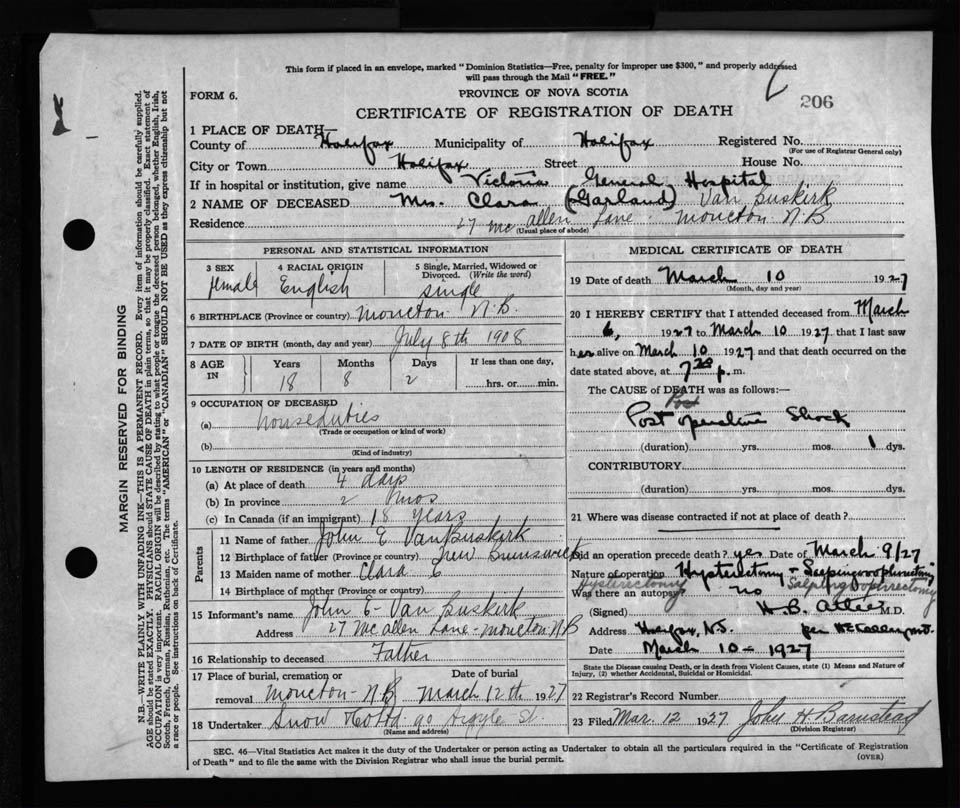 This form if placed in an envelope, marked "Dominion Statistics—Free, penalty for improper use $300," and properly addressed
will pass through the Mail "FREE."
FORM 6.
PROVINCE OF NOVA SCOTIA
206
CERTIFICATE OF REGISTRATION OF DEATH
1 PLACE OF DEATH—
County of Halifax Municipality of Halifax Registered No.
(For use of Registrar General only)
City or Town Halifax Street House No.
If in hospital or institution, give name Victoria General Hospital
2 NAME OF DECEASED Mrs. Clara (Garland) Van Buskirk
Residence 27 McAllen Lane. Moncton N.B
(Usual place of abode)
PERSONAL AND STATISTICAL INFORMATION
3 SEX 4 RACIAL ORIGIN 5 Single, Married, Widowed or
Divorced. (Write the word)
female English single
6 BIRTHPLACE (Province or country) Moncton N.B.
7 DATE OF BIRTH (month, day and year) July 8th 1908
8 AGE IN Years Months Days If less than one day,
18 8 2 hrs. or min.
9 OCCUPATION OF DECEASED
(a) houseduties
(Trade or occupation or kind of work)
(b)
(Kind of industry)
10 LENGTH OF RESIDENCE (in years and months)
(a) At place of death 4 days
(b) In province 2 mos
(c) In Canada (if an immigrant) 18 years
Parents
11 Name of father John E VanBuskirk
12 Birthplace of father (Province or country) New Brunswick
13 Maiden name of mother Clara
14 Birthplace of mother (Province or country)
15 Informant's name John E- Van Buskirk
Address 27 McAllen Lane - Moncton N.B
16 Relationship to deceased Father
17 Place of burial, cremation or Date of burial
removal Moncton - N.B. March 12th 1927
18 Undertaker Snow & Co Ltd. 90 Argyle St.
(Name and address)
MEDICAL CERTIFICATE OF DEATH
19 Date of death March 10 1927
(Month, day and year)
20 I HEREBY CERTIFY that I attended deceased from March
6, 1927 to March 10 1927. that I last saw
her alive on March 10 1927 and that death occurred on the
date stated above, at 7 20 p. m.
The CAUSE of DEATH was as follows:—
Post operative Shock
(duration) yrs. mos. 1 dys.
CONTRIBUTORY
(duration) yrs. mos. dys.
21 Where was disease contracted if not at place of death?
Did an operation precede death? yes Date of March 9/27
Nature of operation Hysterectomy - Salpingoophorectomy
hysterectomy Salpingoophorectomy
Was there an autopsy? no
(Signed) H.B. Atlee M.D.
Address Halifax, N.S.
Date March 10 - 1927
State the Disease causing Death, or in death from Violent Causes, state (1) Means and Nature of
Injury, (2) whether Accidental, Suicidal or Homicidal.
22 Registrar's Record Number
23 Filed Mar. 12 1927 John H Barnstead
(Division Registrar)
SEC. 46—Vital Statistics Act makes it the duty of the Undertaker or person acting as Undertaker to obtain all the particulars required in the "Certificate of Registration
of Death" and to file the same with the Division Registrar who shall issue the burial permit.
(OVER)
MARGIN RESERVED FOR BINDING
N.B.—WRITE PLAINLY WITH UNFADING INK—THIS IS A PERMANENT RECORD. Every item of information should be carefully supplied.
AGE should be stated EXACTLY. PHYSICIANS should STATE CAUSE OF DEATH in plain terms, so that it may be properly classified. Exact statement of
OCCUPATION is very important. RACIAL ORIGIN will be described by stating to what people or tongue the deceased person belonged, whether English, Irish,
Scotch, French, German, Russian, Ruthenian, etc. The terms "AMERICAN" or "CANADIAN" SHOULD NOT BE USED as they express citizenship but not
a race or people. See instructions on back of Certificate.